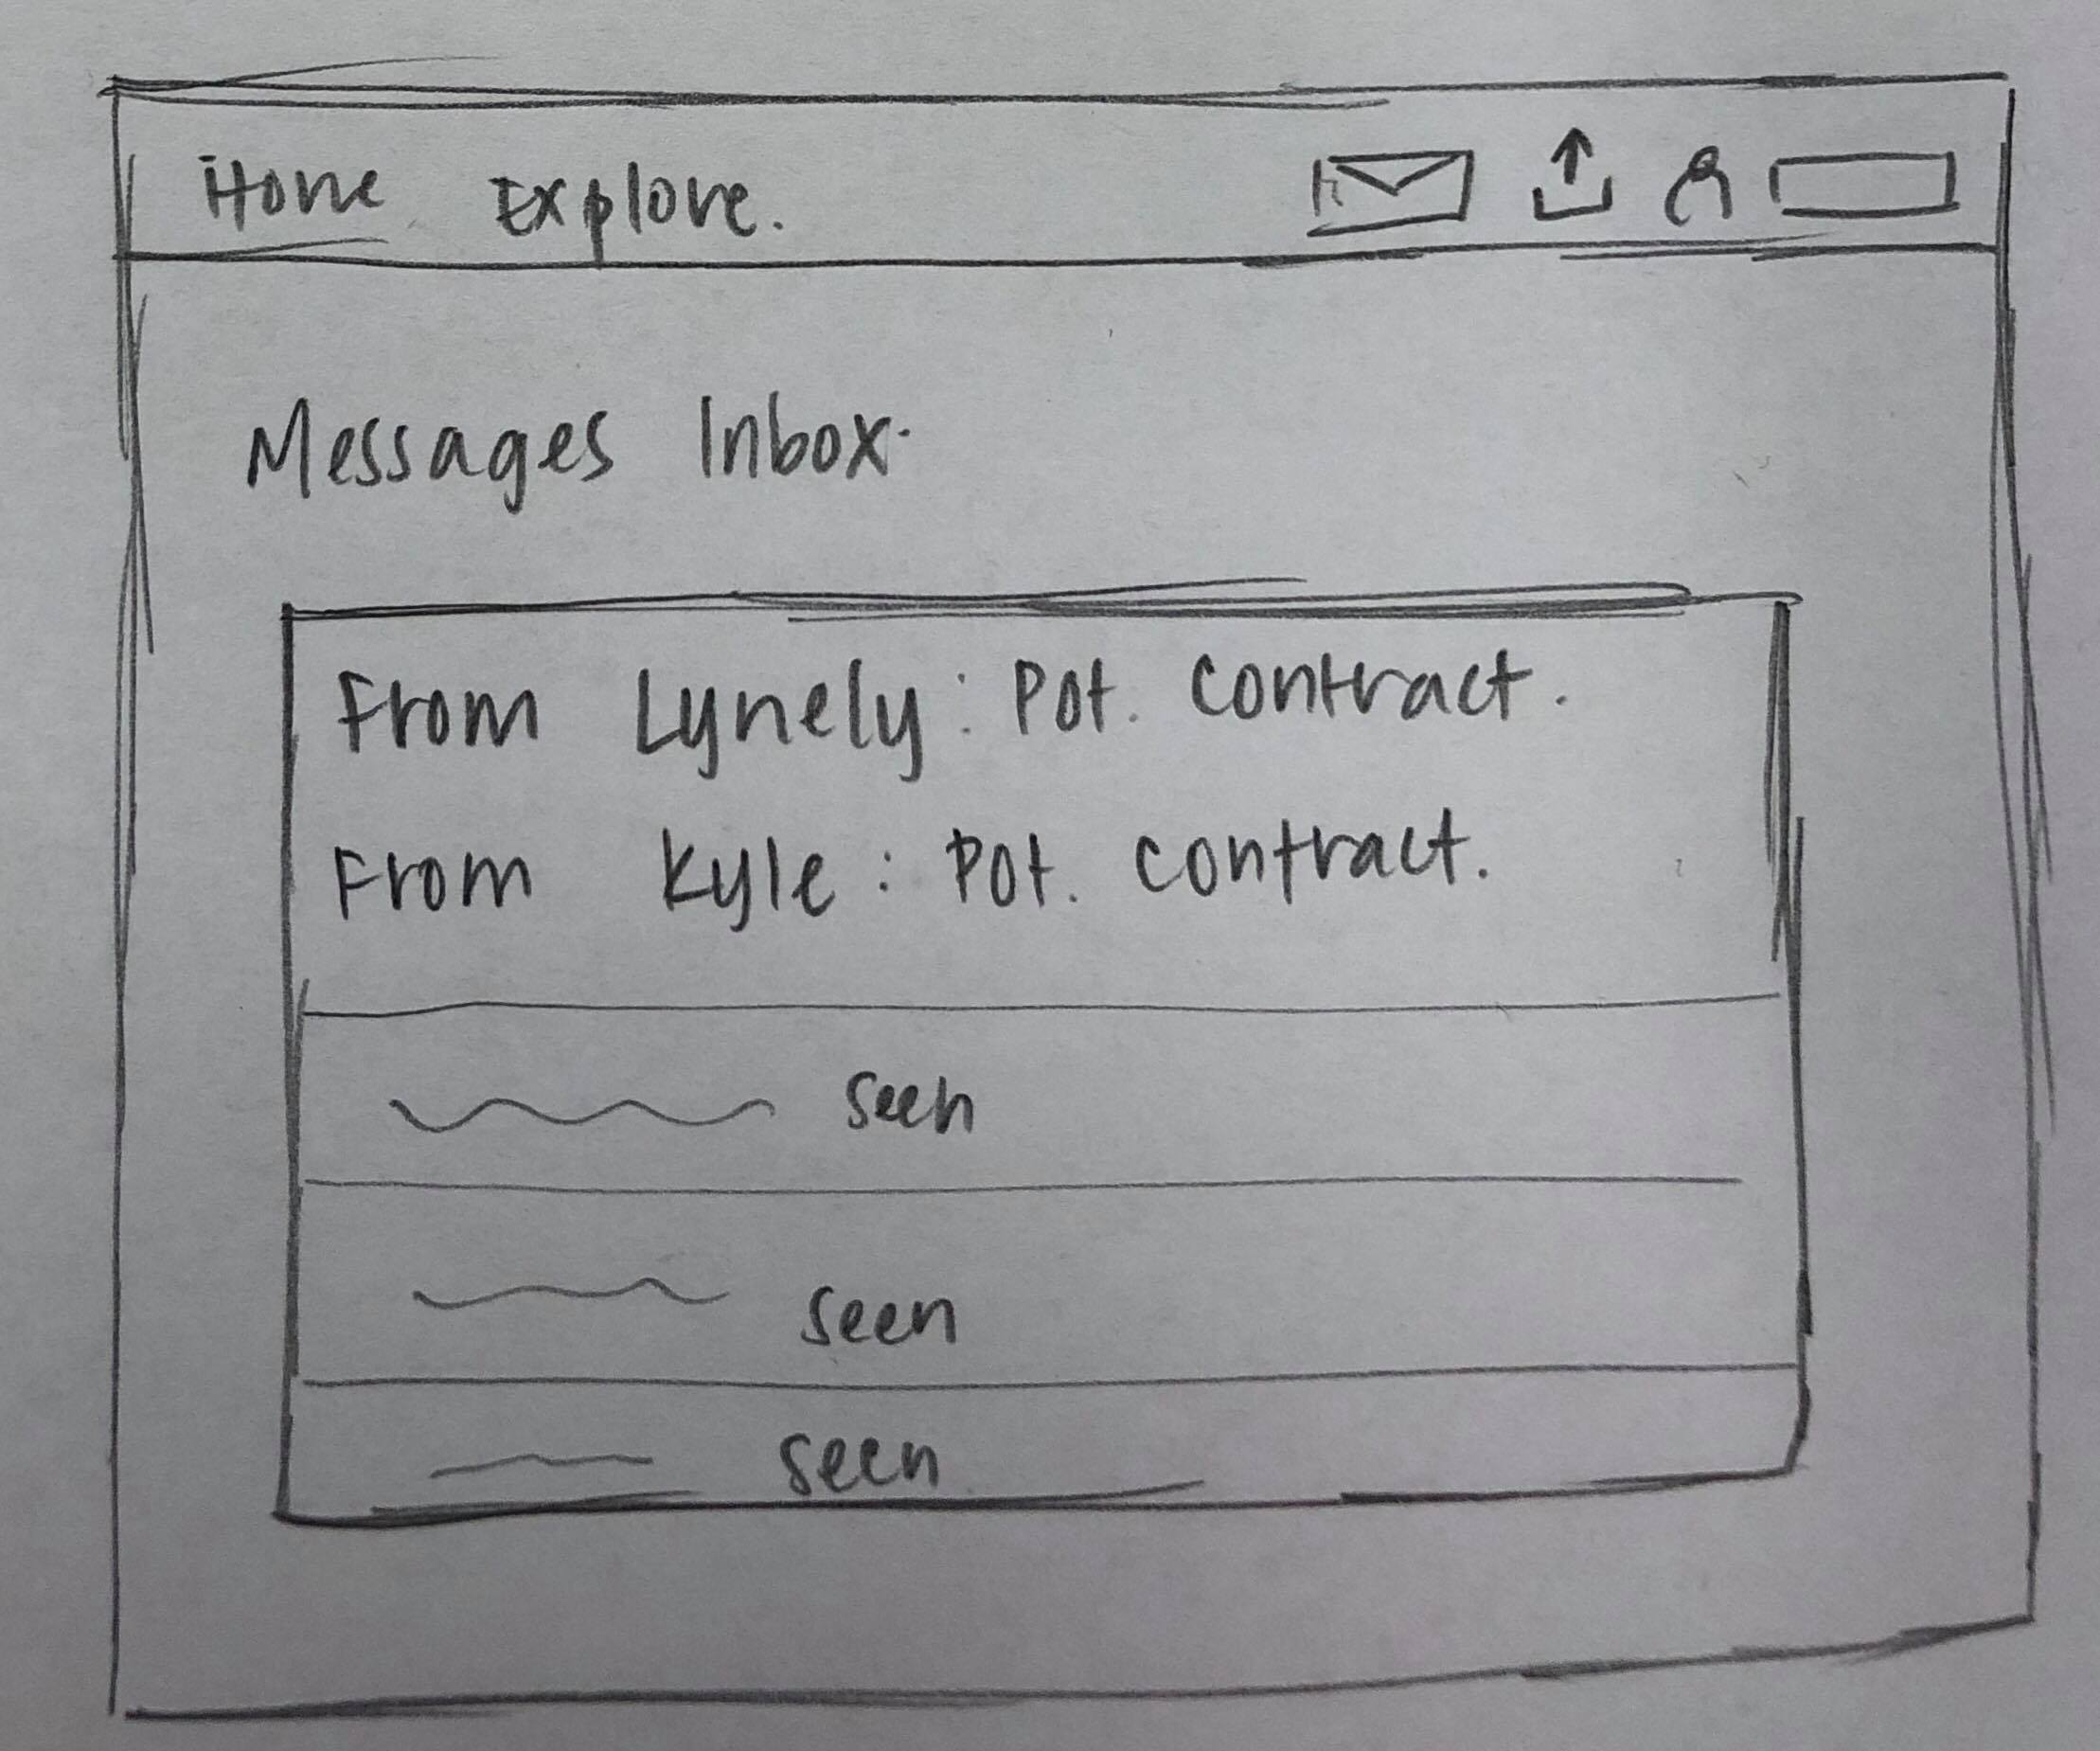 Home Explore.
Messages Inbox.
From Lynely: Pot. contract.
From Kyle: Pot. contract.
seen
seen
seen